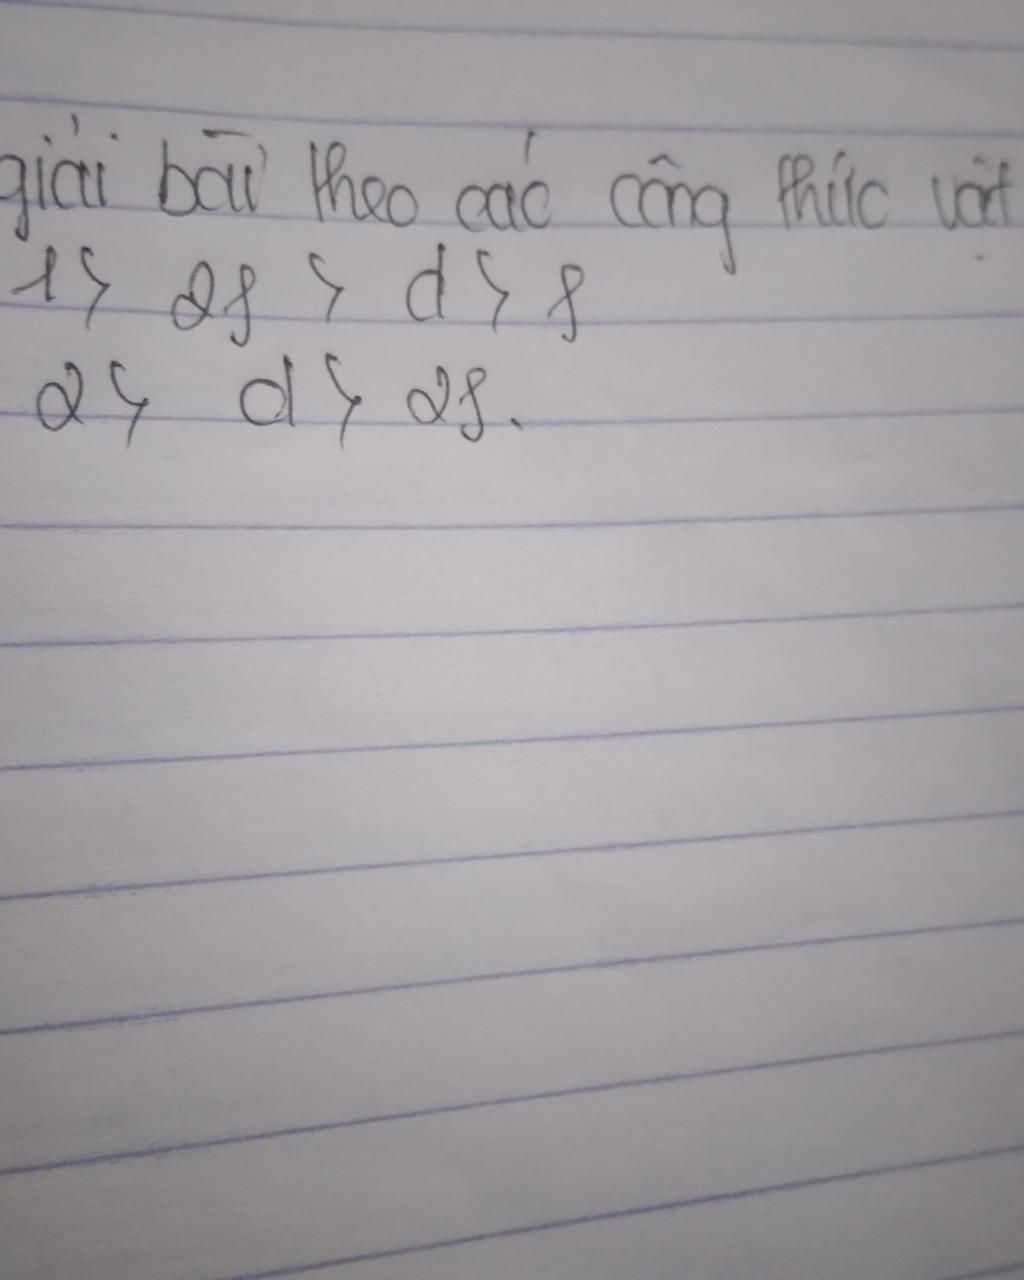 giải bài theo các công thức vật
1> 2f > d > f
2> d > 2f.